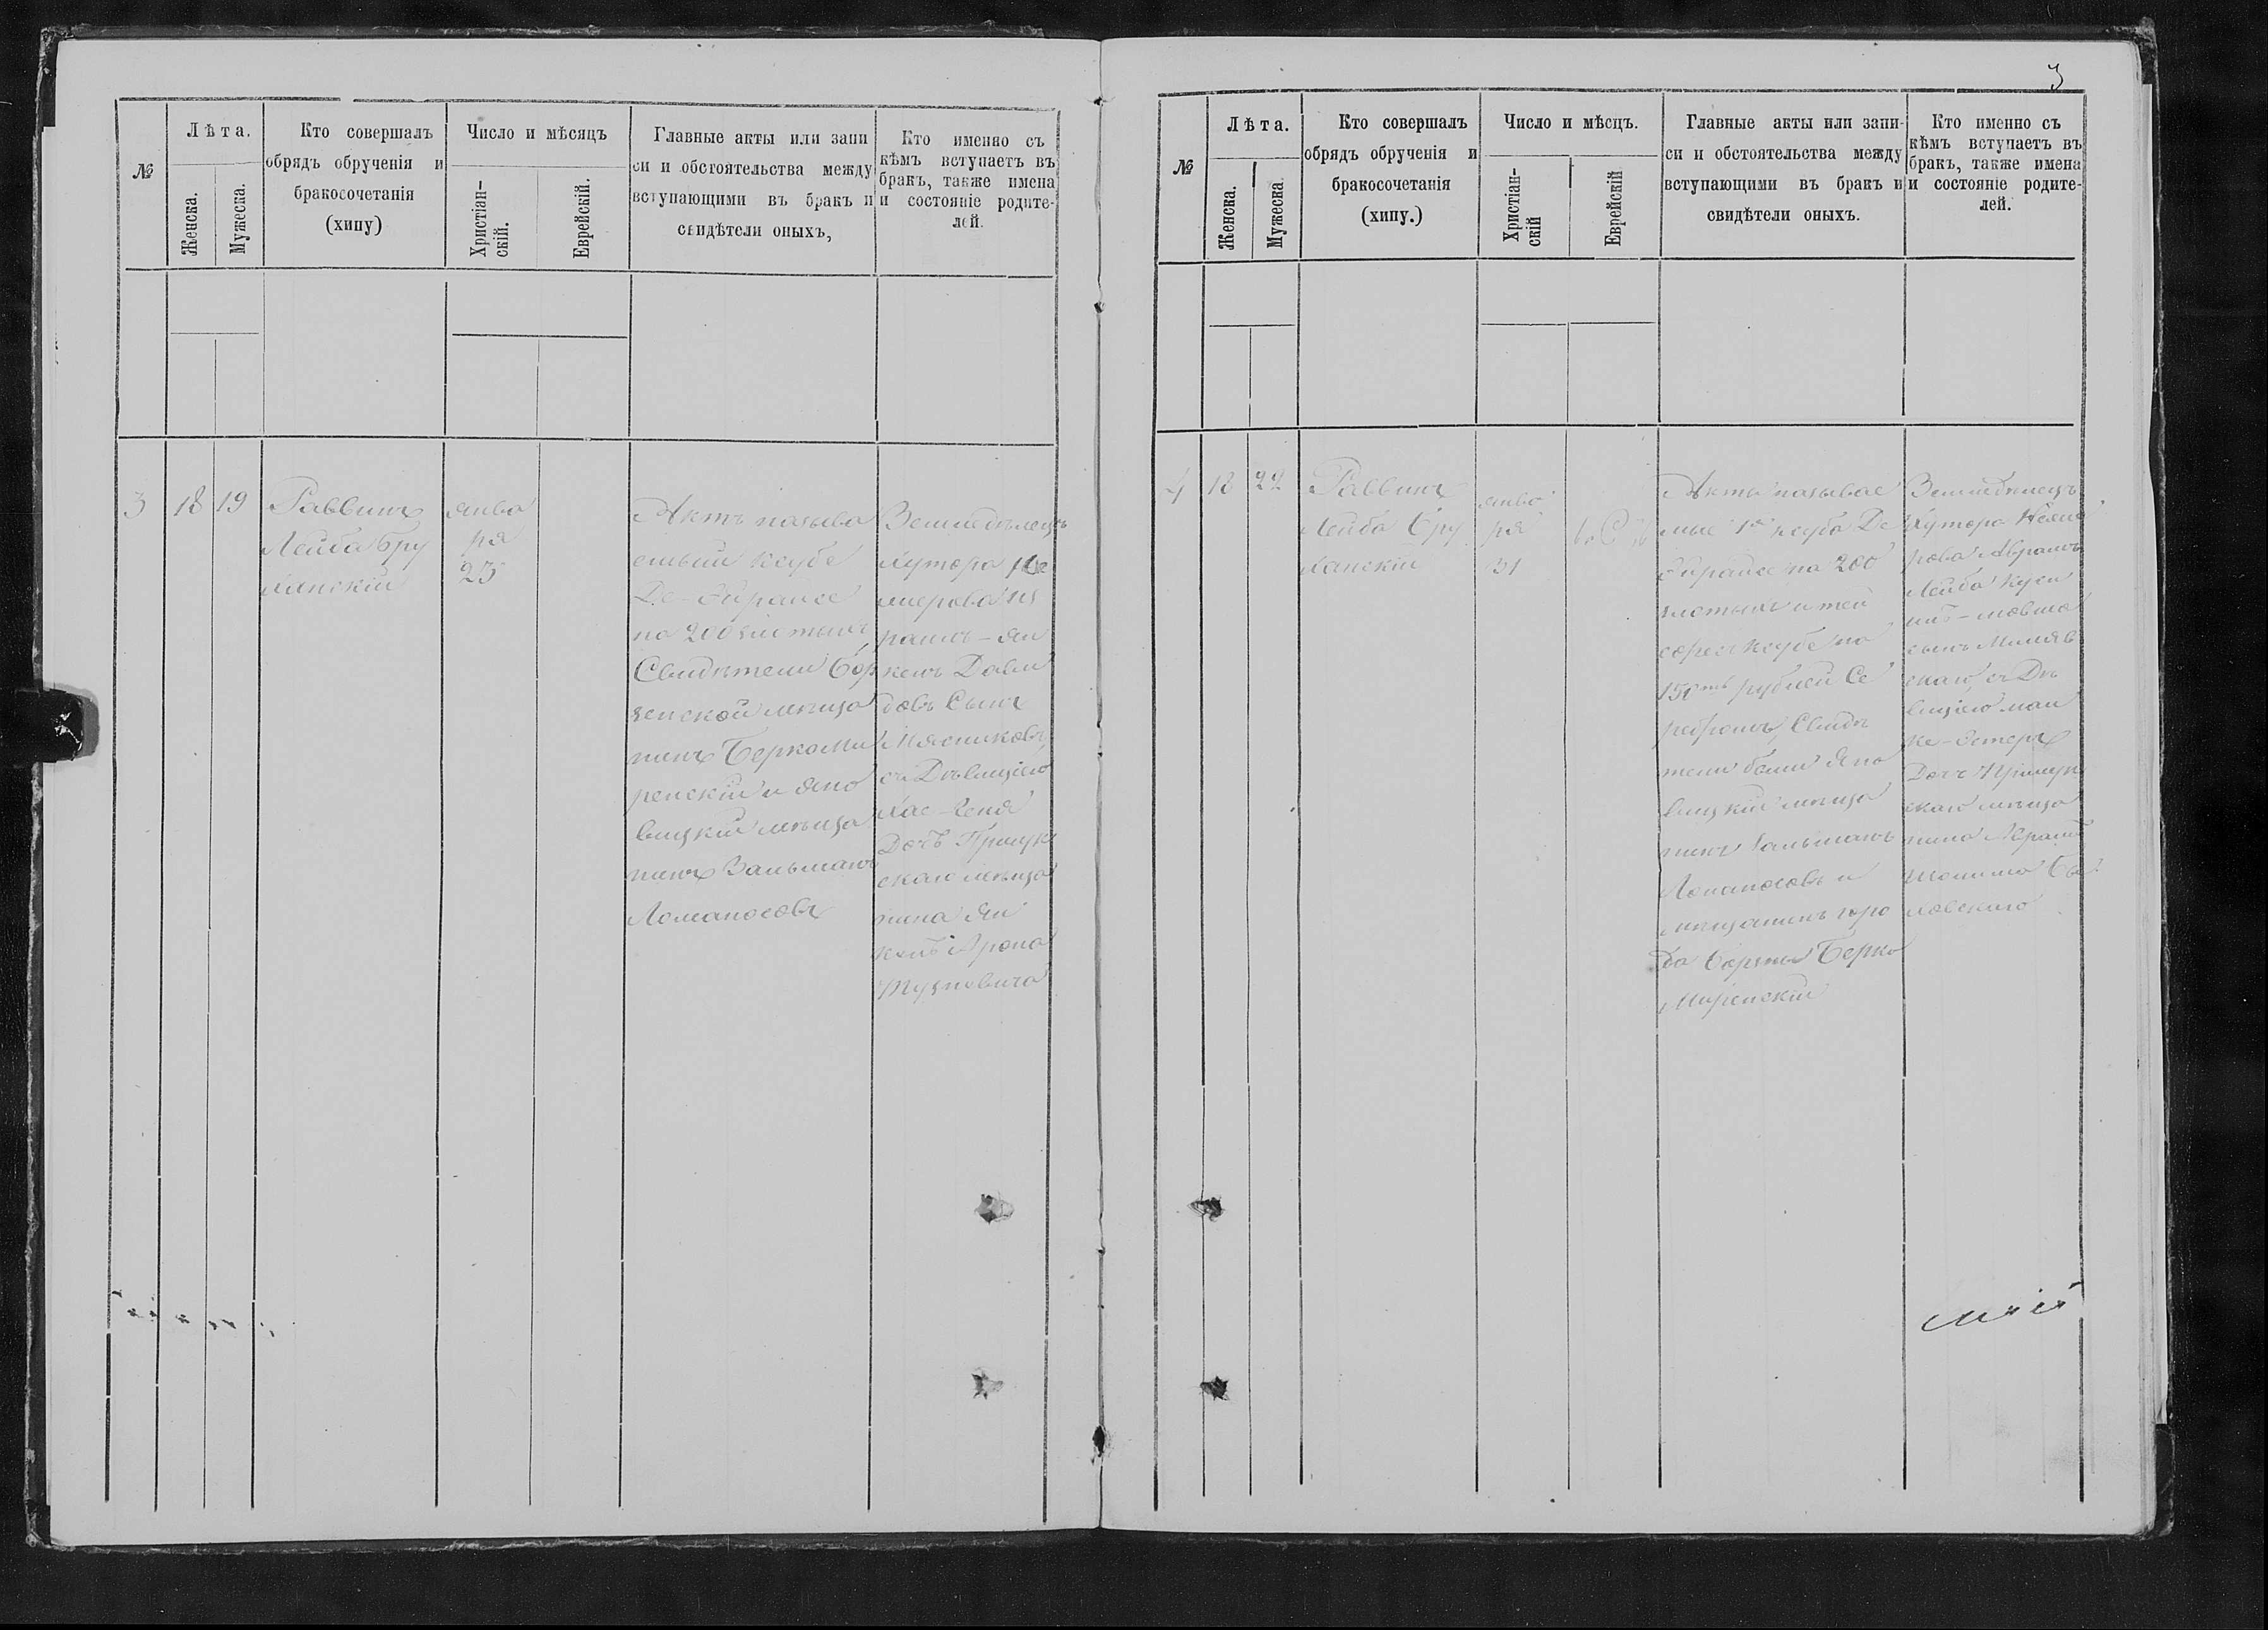 №
Лѣта.
Женска.
Мужеска.
Кто совершалъ
обрядъ обрученія и
бракосочетанія
(хипу)
Число и мѣсяцъ
Христіан-
скій.
Еврейскій.
Главные акты или запи
си и обстоятельства между
вступающими въ бракъ и
свидѣтели оныхъ,
Кто именно съ
кѣмъ вступаетъ въ
бракъ, также имена
и состояніе родите-
лей.
3
18
19
Раввинъ
Лейба Бру
ханскій
янва
ря
25
Актъ называ
емый Ксубе
Де-Ойрайсе
на 200 злотыхъ
Свидѣтели Бор
зенской мѣща
нинъ Берко Ми
ренскій и Яно
вицкій мѣща
нинъ Зальманъ
Ломаносовъ
Земледѣлецъ
Хутора
мерова
-Ян
кель Дави
довъ Сынъ
Мясниковъ,
съ Дѣвицею
Хае-Геня
Дочь Прилук
скаго мѣща
нина Ян
кель Арона
3
№
Лѣта.
Женска.
Мужеска.
Кто совершалъ
обрядъ обрученія и
бракосочетанія
(хипу.)
Число и мѣсцъ.
Христіан-
скій
Еврейскій
Главные акты или запи-
си и обстоятельства между
вступающими въ бракъ и
свидѣтели оныхъ.
Кто именно съ
кѣмъ вступаетъ въ
бракъ, также имена
и состояніе родите-
лей.
4
18
22
Раввинъ
Лейба Бру
ханскій
янва
ря
31
Акты называе
мые 1й ксуба Де
Ойрайсе на 200
злотыхъ и той
сфесъ ксубе на
150ть рублей Се
ребромъ, Свидѣ
тели были Яно
вицкій мѣща
нинъ Зальманъ
Ломаносовъ и
мѣщанинъ горо
да Борзны Берко
Миренскій
Земледѣлецъ
Хутора
рова Абрамъ
Лейба
-мовша
сынъ
скаго, съ Дѣ
вицею Мал
ке-Эстеръ
Дочь Прилук
скаго мѣща
нина Абрам
ховскаго